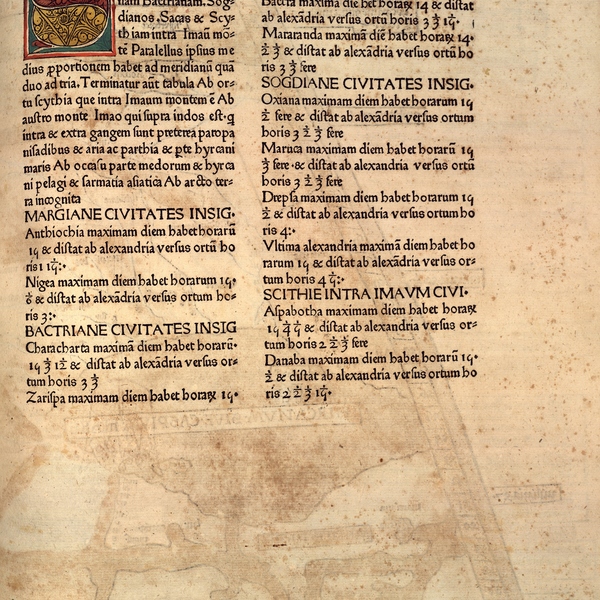 nam Bactrianam. Sog-
dianos. Sacas & Scy-
thiam intra Imaū mō-
tē Paralellus ipsius me
dius ꝓportionem habet ad meridianū quā
duo ad tria. Terminatur aūt tabula Ab or-
tu scythia que intra Imaum montem ē Ab
austro monte Imao qui supra indos est. q̄
intra & extra gangem sunt preterea paropa
nisadibus & aria ac parthia & ꝑte hyrcani
maris Ab occasu parte medorum & hyrca
ni pelagi & sarmatia asiatica Ab arcto ter-
ra incognita
MARGIANE CIVITATES INSIG.
Anthiochia maximam diem habet horarū
14 & distat ab alexandria versus ortū ho
ris
Nigea maximam diem habet horarum 14.
& distat ab alexādria versus ortum ho-
ris 3:.
BACTRIANE CIVITATES INSIG
Characharta maximā diem habet horarū.
14 & distat ab alexādria versus or-
tum horis 3
Zarispa maximam diem habet horaꝝ 14.
Bactra maxima diē het horaꝝ 14 & distat
ab alexādria versus ortū horis 3
Mararanda maximā diē habet horaꝝ 14.
& distat ab alexādria versus ortū ho
ris 3 fere
SOGDIANE CIVITATES INSIG.
Oxiana maximam diem habet horarum 14
fere & distat ab alexandria versus ortum
horis 3 fere
Maruca maximam diem habet horarum 14
fere. & distat ab alexandria versus ortū
horis 3 fere
Drepsa maximam diem habet horarum 14
& distat ab alexandria versus ortum ho
ris 4:.
Vltima alexandria maximā diem habet ho
rarum 14 & distat ab alexandria versus or-
tum horis 4
SCITHIE INTRA IMAVM CIVI.
Aspabotha maximam diem habet horaꝝ
14 & distat ab alexandria versus or-
tum horis 2 fere
Danaba maximam diem habet horarū 14.
& distat ab alexandria versus ortum ho
ris 2